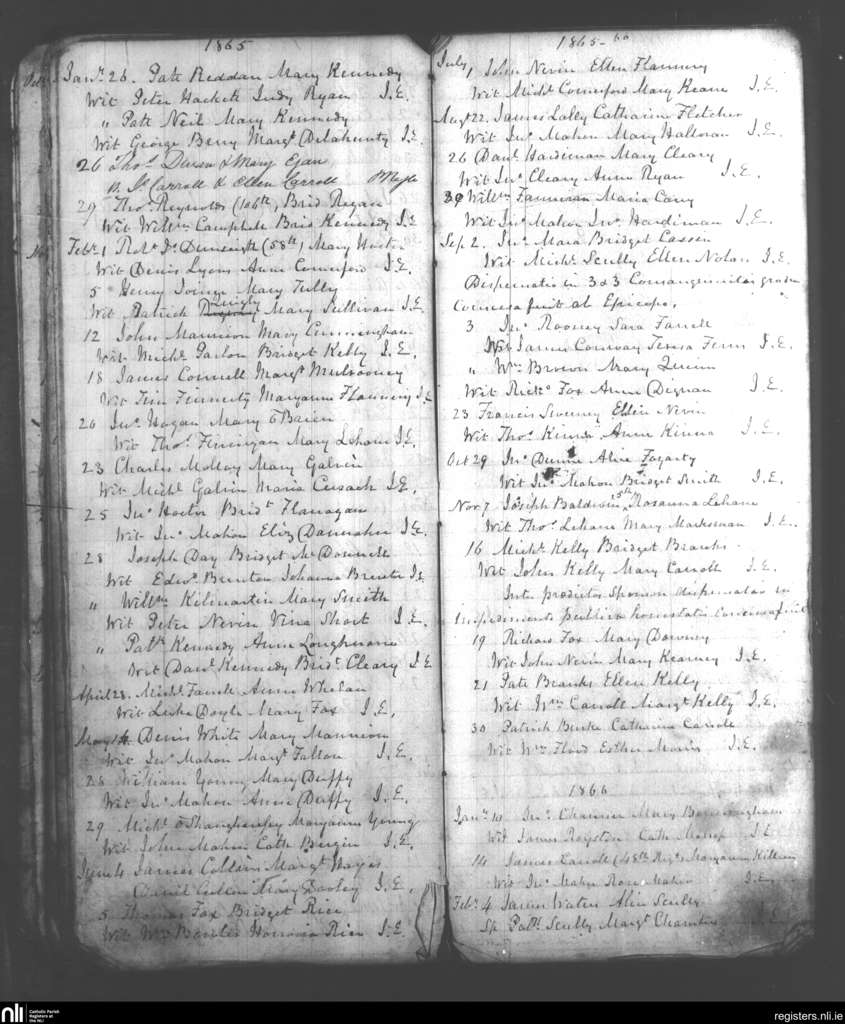 1865
Jany 26. Patt Reddan Mary Kennedy
Wit Peter Hackett Judy Ryan J.E.
" Patt Neil Mary Kennedy
Wit George Berry Margt Delahunty J.E.
26 Thos & Mary Egan
Carroll & Ellen Carroll
29 Thos Reynolds (106th) Brid Regan
Wit Willm Campbell Brid Kennedy J.E
Feby 1 Robt (58th) Mary
Wit Denis Lyons Anne Comerford J.E.
5 Henry Joines Mary Tully
Wit Patrick Quigly Mary Sullivan J.E.
12 John Mannion Mary Cunningham
Wit Michl Parlon Bridget Kelly J.E.
18 James Connell Margt Mulrooney
Wit Tim Finnerty Maryanne Flannery J.E
20 Jno Hogan Mary O'Brien
Wit Thos Finnigan Mary Lehane J.E.
23 Charles Molloy Mary Galvin
Wit Michl Galvin Maria Cusack J.E.
25 Jno Hector Bridt Flanagan
Wit Jno Mahon Eliz Dannaher J.E.
28 Joseph Day Bridget Mc Donnell
Wit Edwd Brunton Johanna J.E.
" Willm Kilmartin Mary Smith
Wit Peter Nevin Vina Short J.E.
" Patk Kennedy Anne Loughnane
Wit Danl Kennedy Bridt Cleary J.E
April 23. Michl Farrell Anne Whelan
Wit Luke Doyle Mary Fox J.E.
May 14 Denis White Mary Mannion
Wit Jno Mahon Margt Fallon J.E.
28 William Young Mary Duffy
Wit Jno Mahon Annie Duffy J.E.
29 Michl O'Shaughnessy Maryanne Young
Wit John Mahon Cath Bergin J.E.
June 4 James Collins Margt Hayes
David Cullen Mary Dooley J.E.
5 Thomas Fox Bridget Rice
Wit Wm Rice J.E.
1865-66
July 1 John Nevin Ellen Flannery
Wit Michl Comerford Mary Keane J.E.
Augt 22. James Lally Catharine Fletcher
Wit Jno Mahon Mary Halloran J.E.
26 Danl Hardiman Mary Cleary
Wit Jno Cleary Anne Ryan J.E.
30 Willm Fanneran Maria Cary
Wit Jno Mahon Jno Hardiman J.E.
Sep 2. Jno Mara Bridget Casson
Wit Michl Scully Ellen Nolan J.E.
Dispensatis in 3 & 3 Consanguinitatis gradu
Concessa fuit ab Episcopo.
3 Jno Rooney Sara Farrell
Wit James Conway Teresa Fenn J.E.
" Wm Brown Mary Quinn
Wit Richd Fox Anne Dignan J.E.
23 Francis Sweeney Ellen Nevin
Wit Thos Kinna Anne Kinna J.E.
Oct 29 Jno Dunne Alice Fogarty
Wit Jno Mahon Bridget Smith J.E.
Nov 7 Joseph Baldwin Rosanna Lehane
Wit Thos Lehane Mary Marksman J.E.
16 Michl Kelly Bridget Branks
Wit John Kelly Mary Carroll J.E.
Inter predictos Sponsos dispensatio in
Impedimento publicae honestatis
19 Richard Fox Mary Downey
Wit John Nevin Mary Kearney J.E.
21 Patt Branks Ellen Kelly
Wit Wm Carroll Margt Kelly J.E.
30 Patrick Burke Catharine Carroll
Wit Wm Flood Esther Morris J.E.
1866
Jany 10 Jno Mary Bermingham
Wit James Royston Cath J.E
14 James Carroll (48th Regt) Maryanne
Wit Jno Maher Rose Maher J.E.
Feby 4 James Waters Alice Scully
Sp Patk Scully Margt J.E.
nli Catholic Parish Registers at the NLI
registers.nli.ie